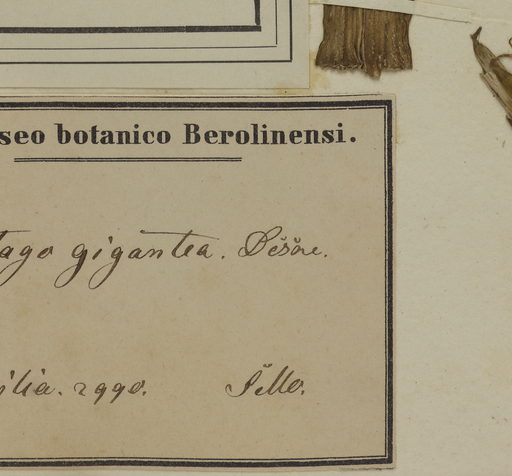 seo botanico Berolinensi.
tago gigantea. Dcsne.
ilia. 2990. Sello.